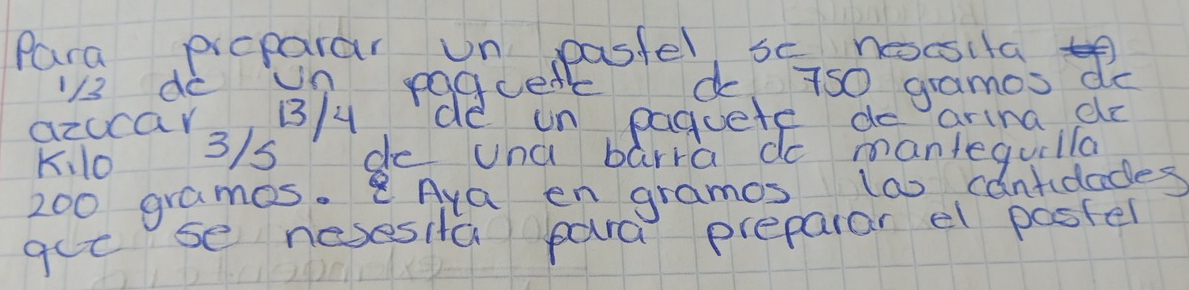 Para preparar un pastel se nececita
1/3 de un paquete de 750 gramos de
azucar 13/4 de un paquete de arina de
Kilo 3/5 de una barra de mantequilla
200 gramos. Aya en gramos las cantidades
que se nesesita para preparar el pastel